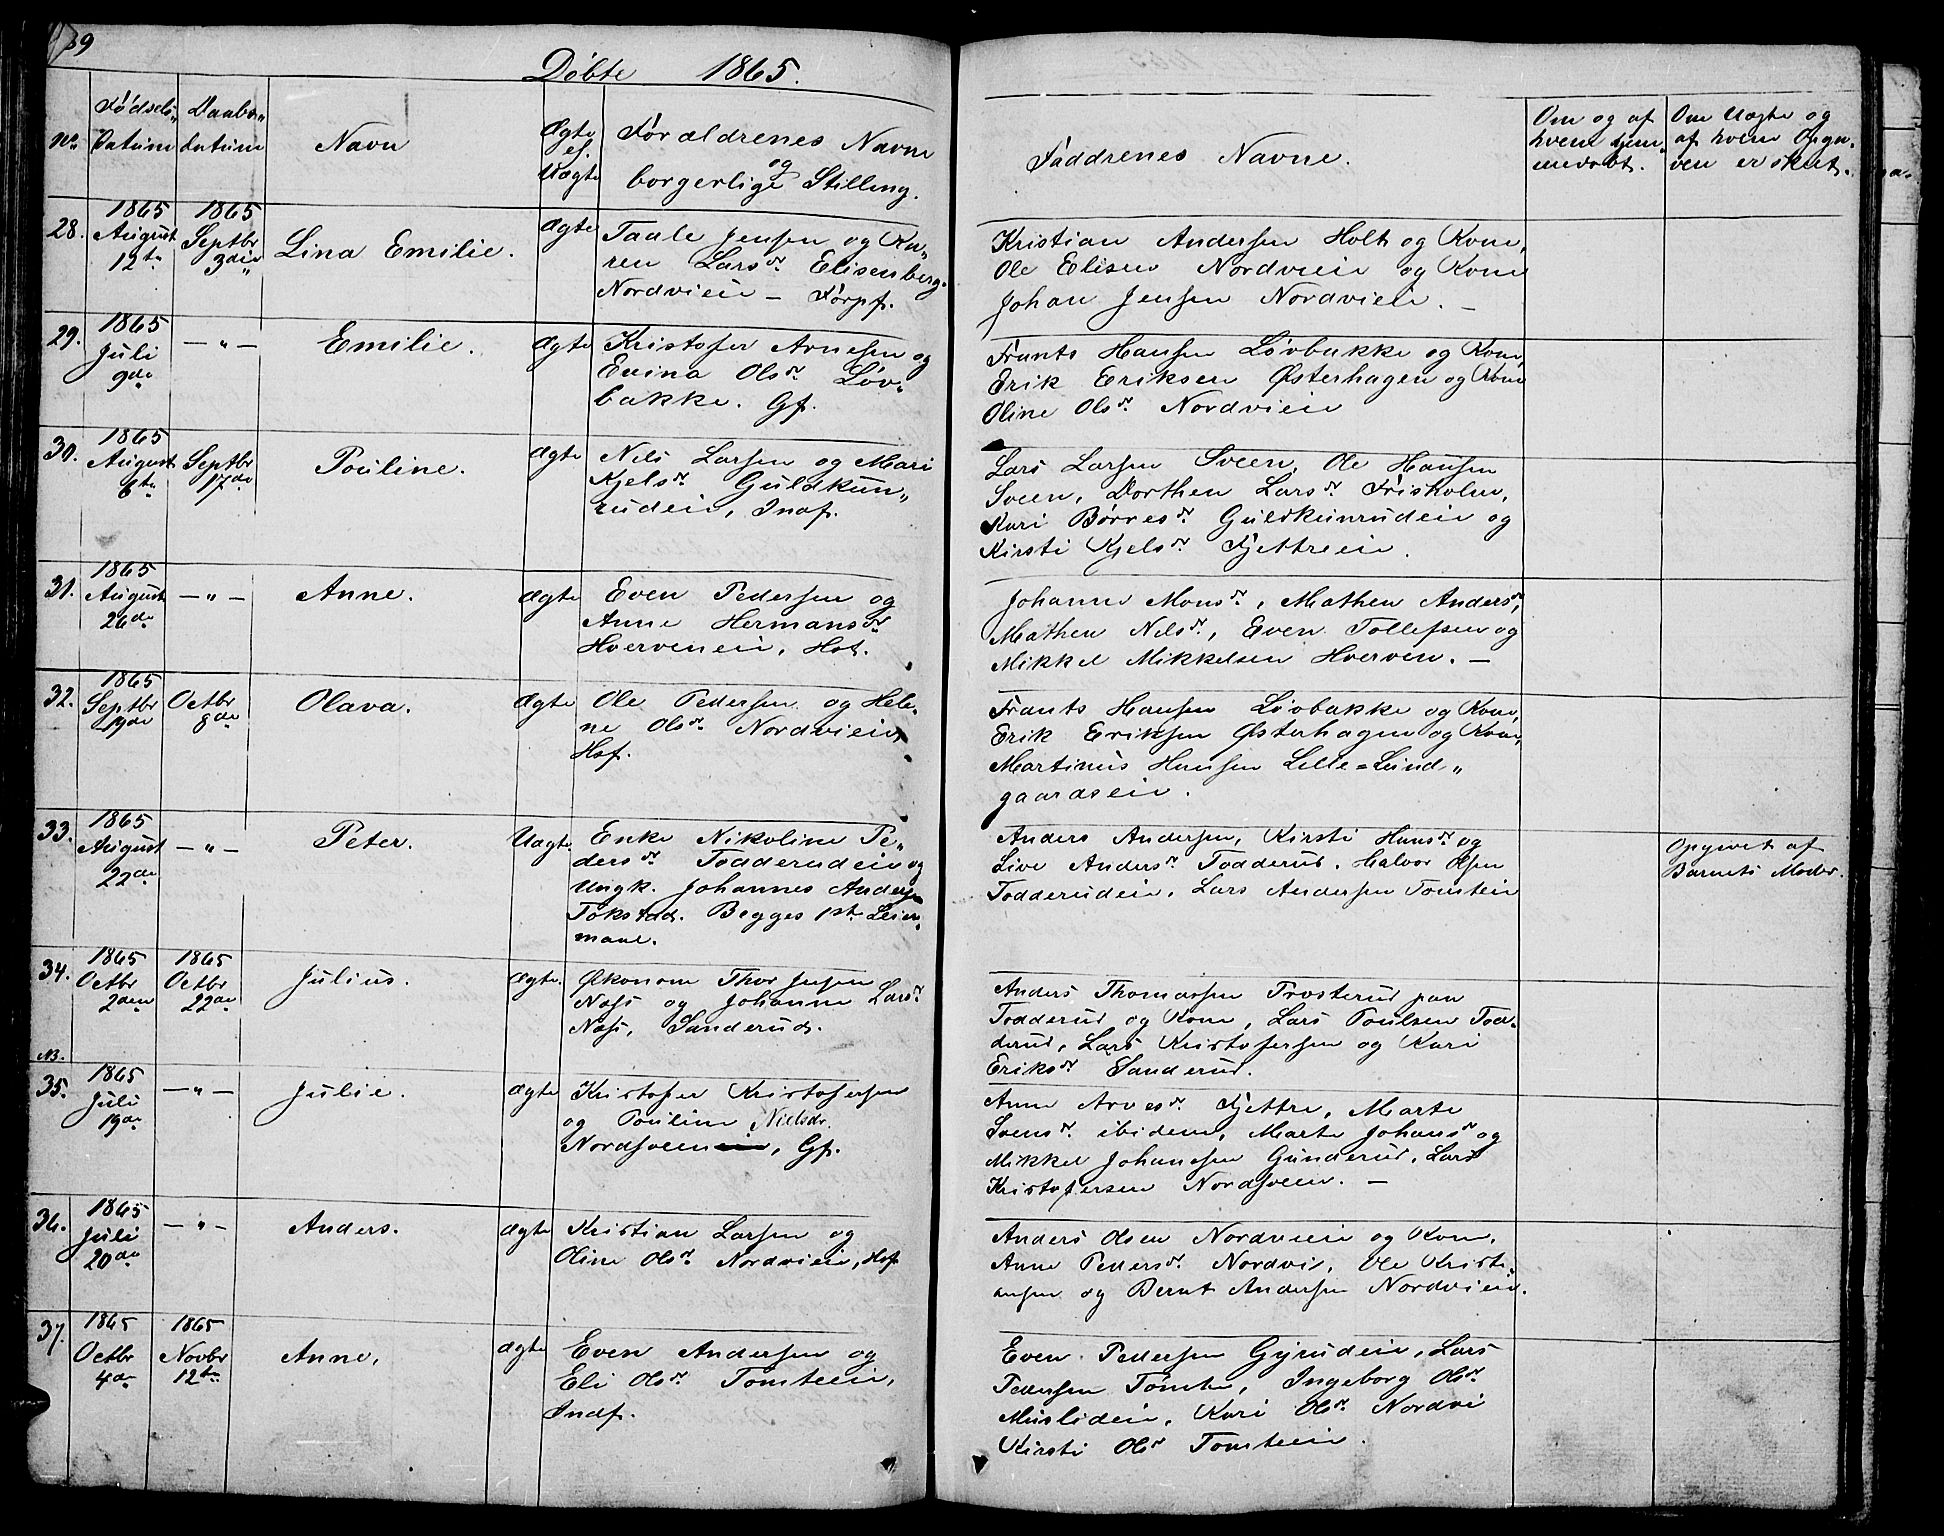 39
Døbte 1865.
No Fødsels- Datum Daabs- datum Navn Ægte el. Uægte Forældrenes Navne og borgerlige Stilling. Faddrenes Navne. Om og af hvem hjem- medøbt. Om Uægte og af hvem Opgi- ven er skeet.
28. 1865 August 12te 1865 Septbr 3die Lina Emilie. Ægte
Taale Jensen og Ka-
ren Larsdr. Elisenberg-
Nordvieie - Førpf.
Kristian Andersen Holt og Kone,
Ole Elisen Nordvieie og Kone
Johan Jensen Nordvieie. -
29. 1865 Juli 9de - " - Emilie. Ægte
Kristofer Arnesen og
Evina Olsdr. Løv-
bakke. Gf.
Frants Hansen Løvbakke og Kone,
Erik Eriksen Østerhagen og Kone
Oline Olsdr. Nordvieie
30. 1865 August 6te Septbr 17de Pouline. Ægte
Nils Larsen og Mari
Kjelsdr. Guldkun-
rudeie, Indf.
Lars Larsen Sveen, Ole Hansen
Sveen, Dorthea Larsdr. Frisholm,
Kari Børresdr. Guldkunrudeie og
Kirsti Kjelsdr. Fjettreeie.
31. 1865 August 26de - " - Anne. Ægte
Even Pedersen og
Anne Hermansdr.
Hverveneie, Hst.
Johanne Monsdr., Mathea Andersdr,
Mathea Nilsdr., Even Tollefsen og
Mikkel Mikkelsen Hverven. -
32. 1865 Septbr 19de Octbr 8de Olava. Ægte
Ole Pedersen og Hele-
ne Olsdr. Nordvieie
Hsf.
Frants Hansen Løvbakke og Kone,
Erik Eriksen Østerhagen og Kone,
Martinus Hansen Lille=Lund-
gaardseie.
33. 1865 August 22de - " - Peter. Uægte
Enke Nikoline Pe-
dersdr. Todderudeie og
Ungk. Johannes Andersen
Tokstad. Begges 1ste Leier-
maal.
Anders Andersen, Kirsti Hansdr. og
Live Andersdr. Todderud, Halvor Olsen
Todderudeie, Lars Andersen Tomteeie
Opgivet af
Barnets Moder.
34. 1865 Octbr 2den 1865 Octbr 22de Julius. Ægte.
Økonom Thor Jensen
Næss og Johanne Larsdr.
Næss, Sanderud.
Anders Thomassen Frosterud paa
Todderud og Kone, Lars Poulsen Tod-
derud, Lars Kristofersen og Kari
Eriksdr. Sanderud.
NB.
35. 1865 Juli 19de - " - Julie. Ægte
Kristofer Kristofersen
og Pouline Nielsdr.
Nordsveen, Gf.
Anne Arnesdr. Fjettre, Marte
Svensdr. ibidem, Marte Johansdr og
Mikkel Johansen Gunderud, Lars
Kristofersen Nordsveen. -
36. 1865 Juli 20de - " - Anders. Ægte
Kristian Larsen og
Oline Olsdr. Nordvieie, Hsf
Anders Olsen Nordvieie og Kone,
Anne Pedersdr. Nordvie, Ole Kristi-
ansen og Bernt Andersen Nordvieie.
37. 1865 Octbr 4de 1865 Novbr 12te Anne, Ægte
Even Andersen og
Eli Olsdr. Tomteeie,
Indf.
Even Pedersen Gyrudeie, Lars
Pedersen Tømte, Ingeborg Olsdr.
Muslideie, Kari Olsdr. Nordvi
Kirsti Olsdr Tomteeie.